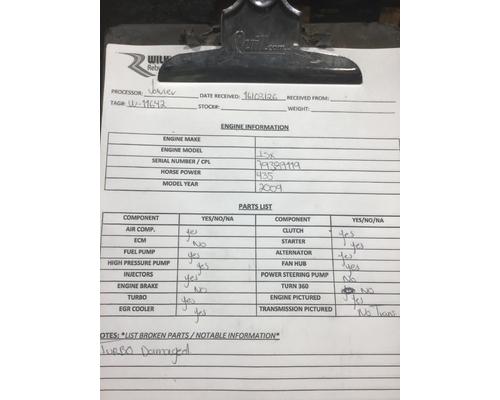 WILK
Rebu
PROCESSOR: Javier DATE RECEIVED: 16/03/26 RECEIVED FROM:
TAG#: W-11642 STOCK#: WEIGHT:
ENGINE INFORMATION
ENGINE MAKE
ENGINE MODEL ISX
SERIAL NUMBER / CPL 79389119
HORSE POWER 435
MODEL YEAR 2009
PARTS LIST
COMPONENT YES/NO/NA COMPONENT YES/NO/NA
AIR COMP. yes CLUTCH yes
ECM No STARTER yes
FUEL PUMP yes ALTERNATOR yes
HIGH PRESSURE PUMP yes FAN HUB yes
INJECTORS yes POWER STEERING PUMP No
ENGINE BRAKE No TURN 360 No
TURBO yes ENGINE PICTURED yes
EGR COOLER yes TRANSMISSION PICTURED No Trans
NOTES: *LIST BROKEN PARTS / NOTABLE INFORMATION*
TURBO Damaged